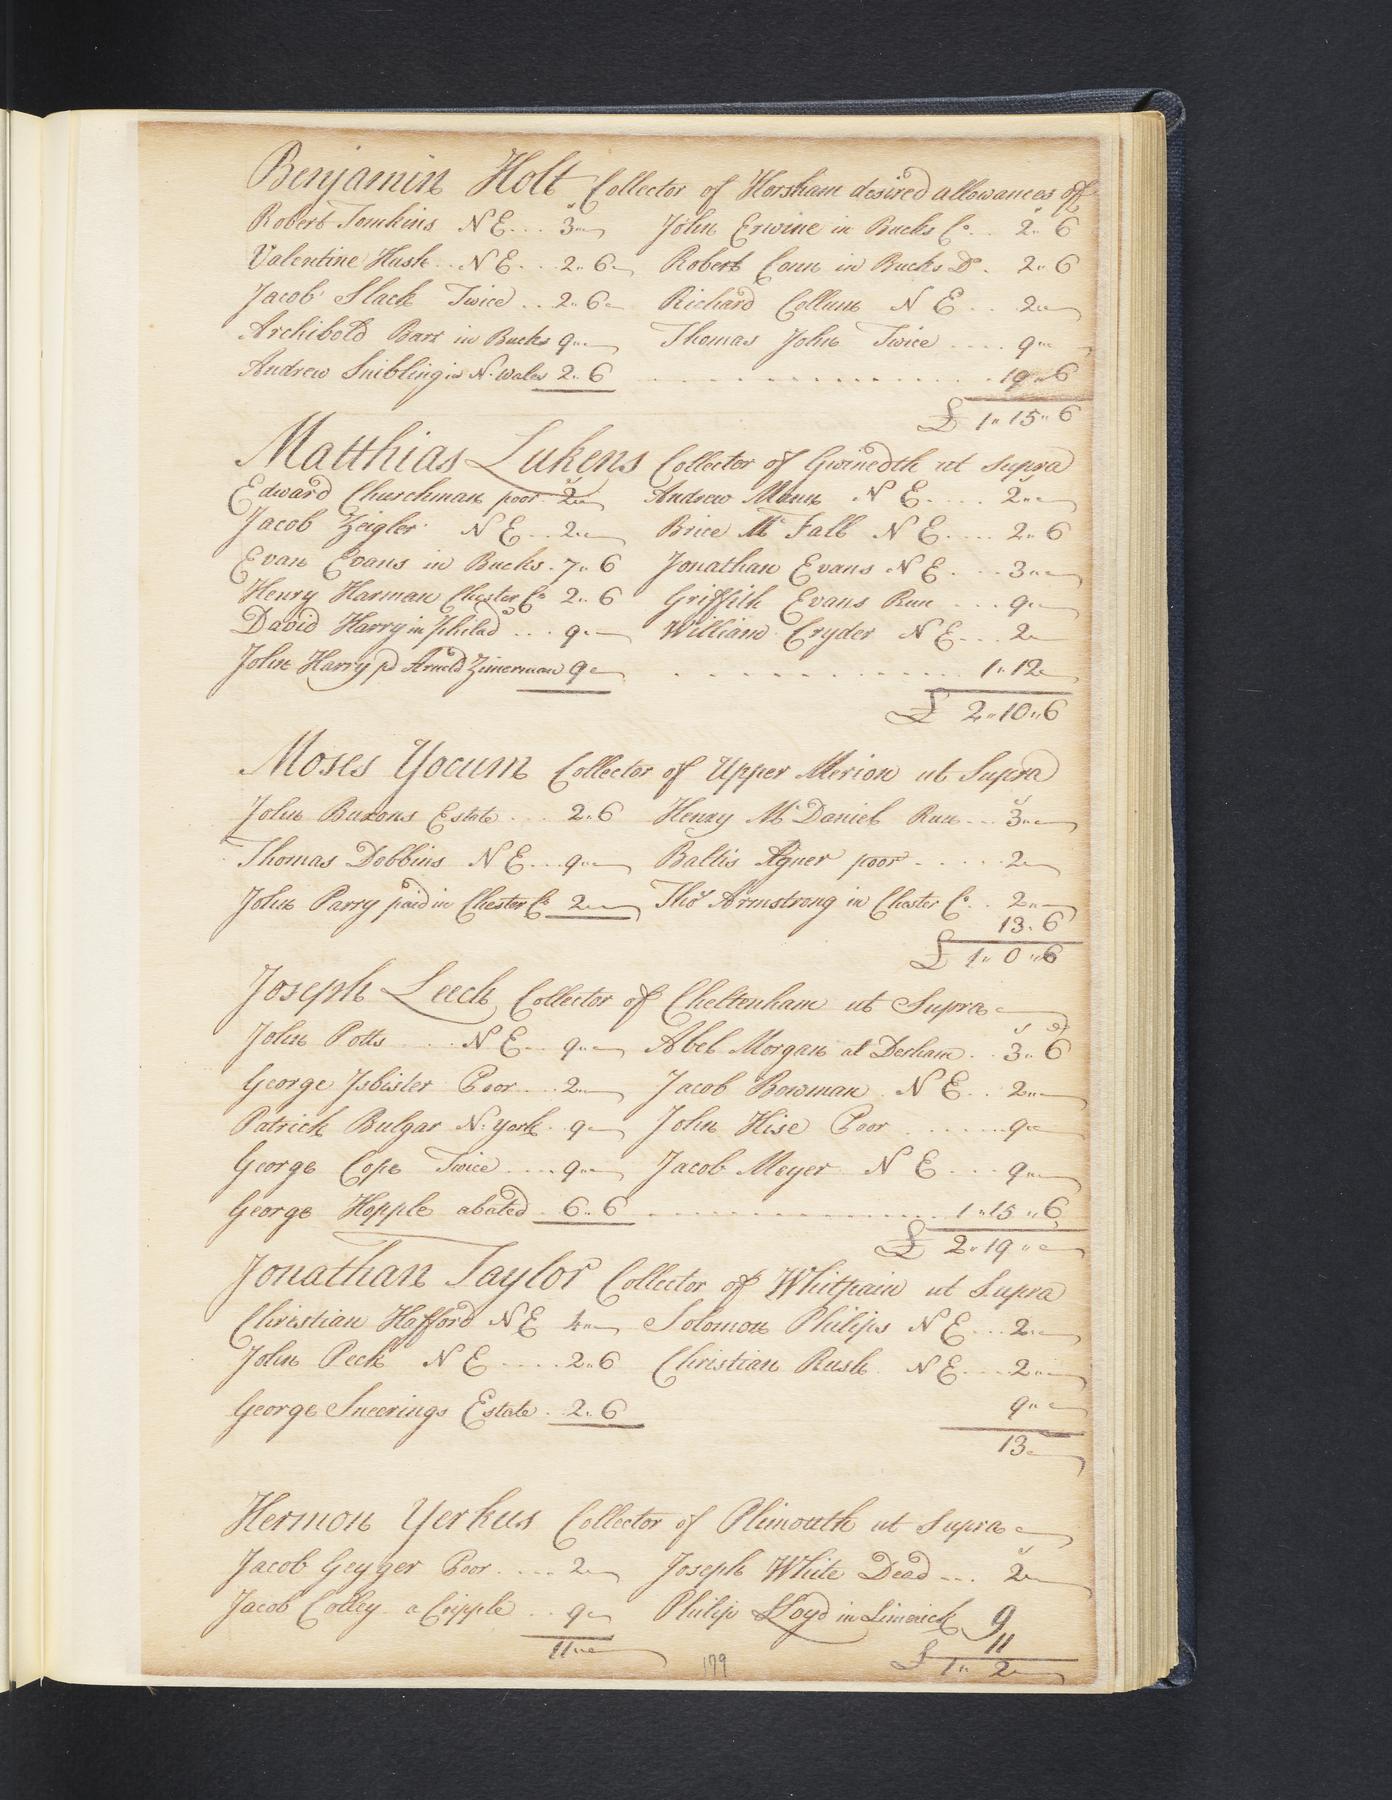 Benjamin Holt Collector of Horsham desired allowances of
Robert Tomkins N E... 3 John Erwine in Bucks Co. .. 2.. 6
Valentine Hush.. N E... 2.. 6 Robert Conn in Bucks Do. 2.. 6
Jacob Slack Twice .. 2.. 6 Richard Collum N E... 2
Archibold Barr in Bucks 9 Thomas John Twice .... 9
Andrew Snibling in N. Wales 2.. 6 ............ 19.. 6
£ 1.. 15.. 6
Matthias Lukens Collector of Gwinedth ut Supra
Edward Churchman poor 2 Andrew Mann N E.... 2
Jacob Zeigler N E... 2 Brice Mc Fall N E.... 2.. 6
Evan Evans in Bucks. 7.. 6 Jonathan Evans N E.... 3
Henry Harman Chester Co 2.. 6 Griffith Evans Run ... 9
David Harry in philad ... 9 William Cryder N E... 2
John Harry pd Arnold Zimerman 9 ............ 1.. 12
£ 2.. 10.. 6
Moses Yocum Collector of Upper Merion ut Supra
John Burons Estate ... 2.. 6 Henry Mc Daniel Run... 3
Thomas Dobbins N E... 9 Baltis Agner poor ..... 2
John Parry paid in Chester Co 2 Thos Armstrong in Chester Co. . 2
13.. 6
£ 1.. 0.. 6
Joseph Leech Collector of Cheltenham ut Supra
s d
John Potts .... N E... 9 Abel Morgan at Derham .. 3.. 6
George Isbister Poor... 2 Jacob Bowman N E... 2
Patrick Bulgar N. York. 9 John Hise Poor ...... 9
George Cope Twice .... 9 Jacob Meyer N E.... 9
George Hopple abated 6.. 6 ............ 1.. 15.. 6
£ 2.. 19..
Jonathan Taylor Collector of Whitpain ut Supra
Christian Hafford N E 4 Solomon Philips N E... 2
John Peck N E .... 2.. 6 Christian Rush N E.... 2
George Sneerings Estate . 2.. 6 9
13
Hermon Yerkus Collector of Plimouth ut Supra
Jacob Geyger Poor .... 2 Joseph White Dead ... 2
Jacob Colley a Cripple .. 9 Philip Lloyd in Limerick 9
11 11
£ 1.. 2
179